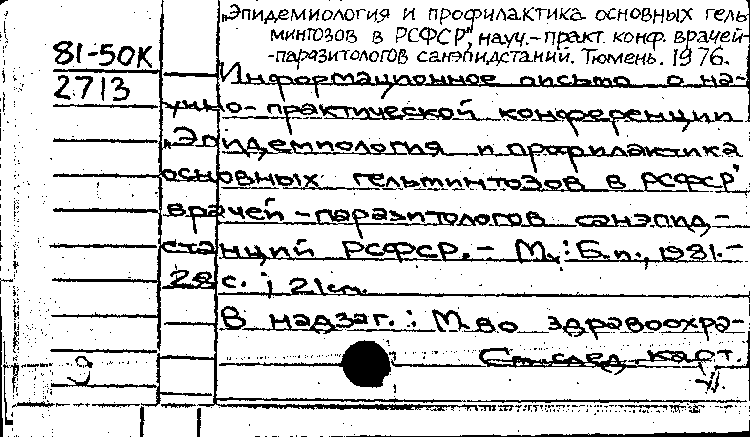 „Эпидемиология и профилактика основных гель
минтозов в РСФСР", науч.-практ. конф. врачей-
-паразитологов санэпидстаний. Тюмень. 1976.
81-50К
2713
Информационное письмо о на-
учно-практической конференции
„Эпидемиология и профилактика
основных гельминтозов в РСФСР"
врачей-паразитологов санэпид-
станций РСФСР.- М.: Б.и., 1981.-
28 с. ; 21см.
В надзаг.: М-во здравоохра-
См. след. карт.
9